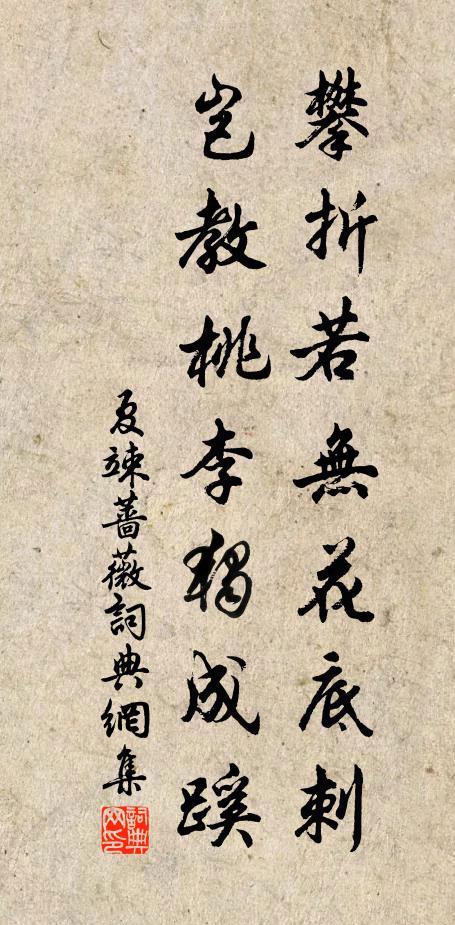 攀折若無花底刺
豈教桃李獨成蹊
夏竦薔薇詞典網集
詞典網印